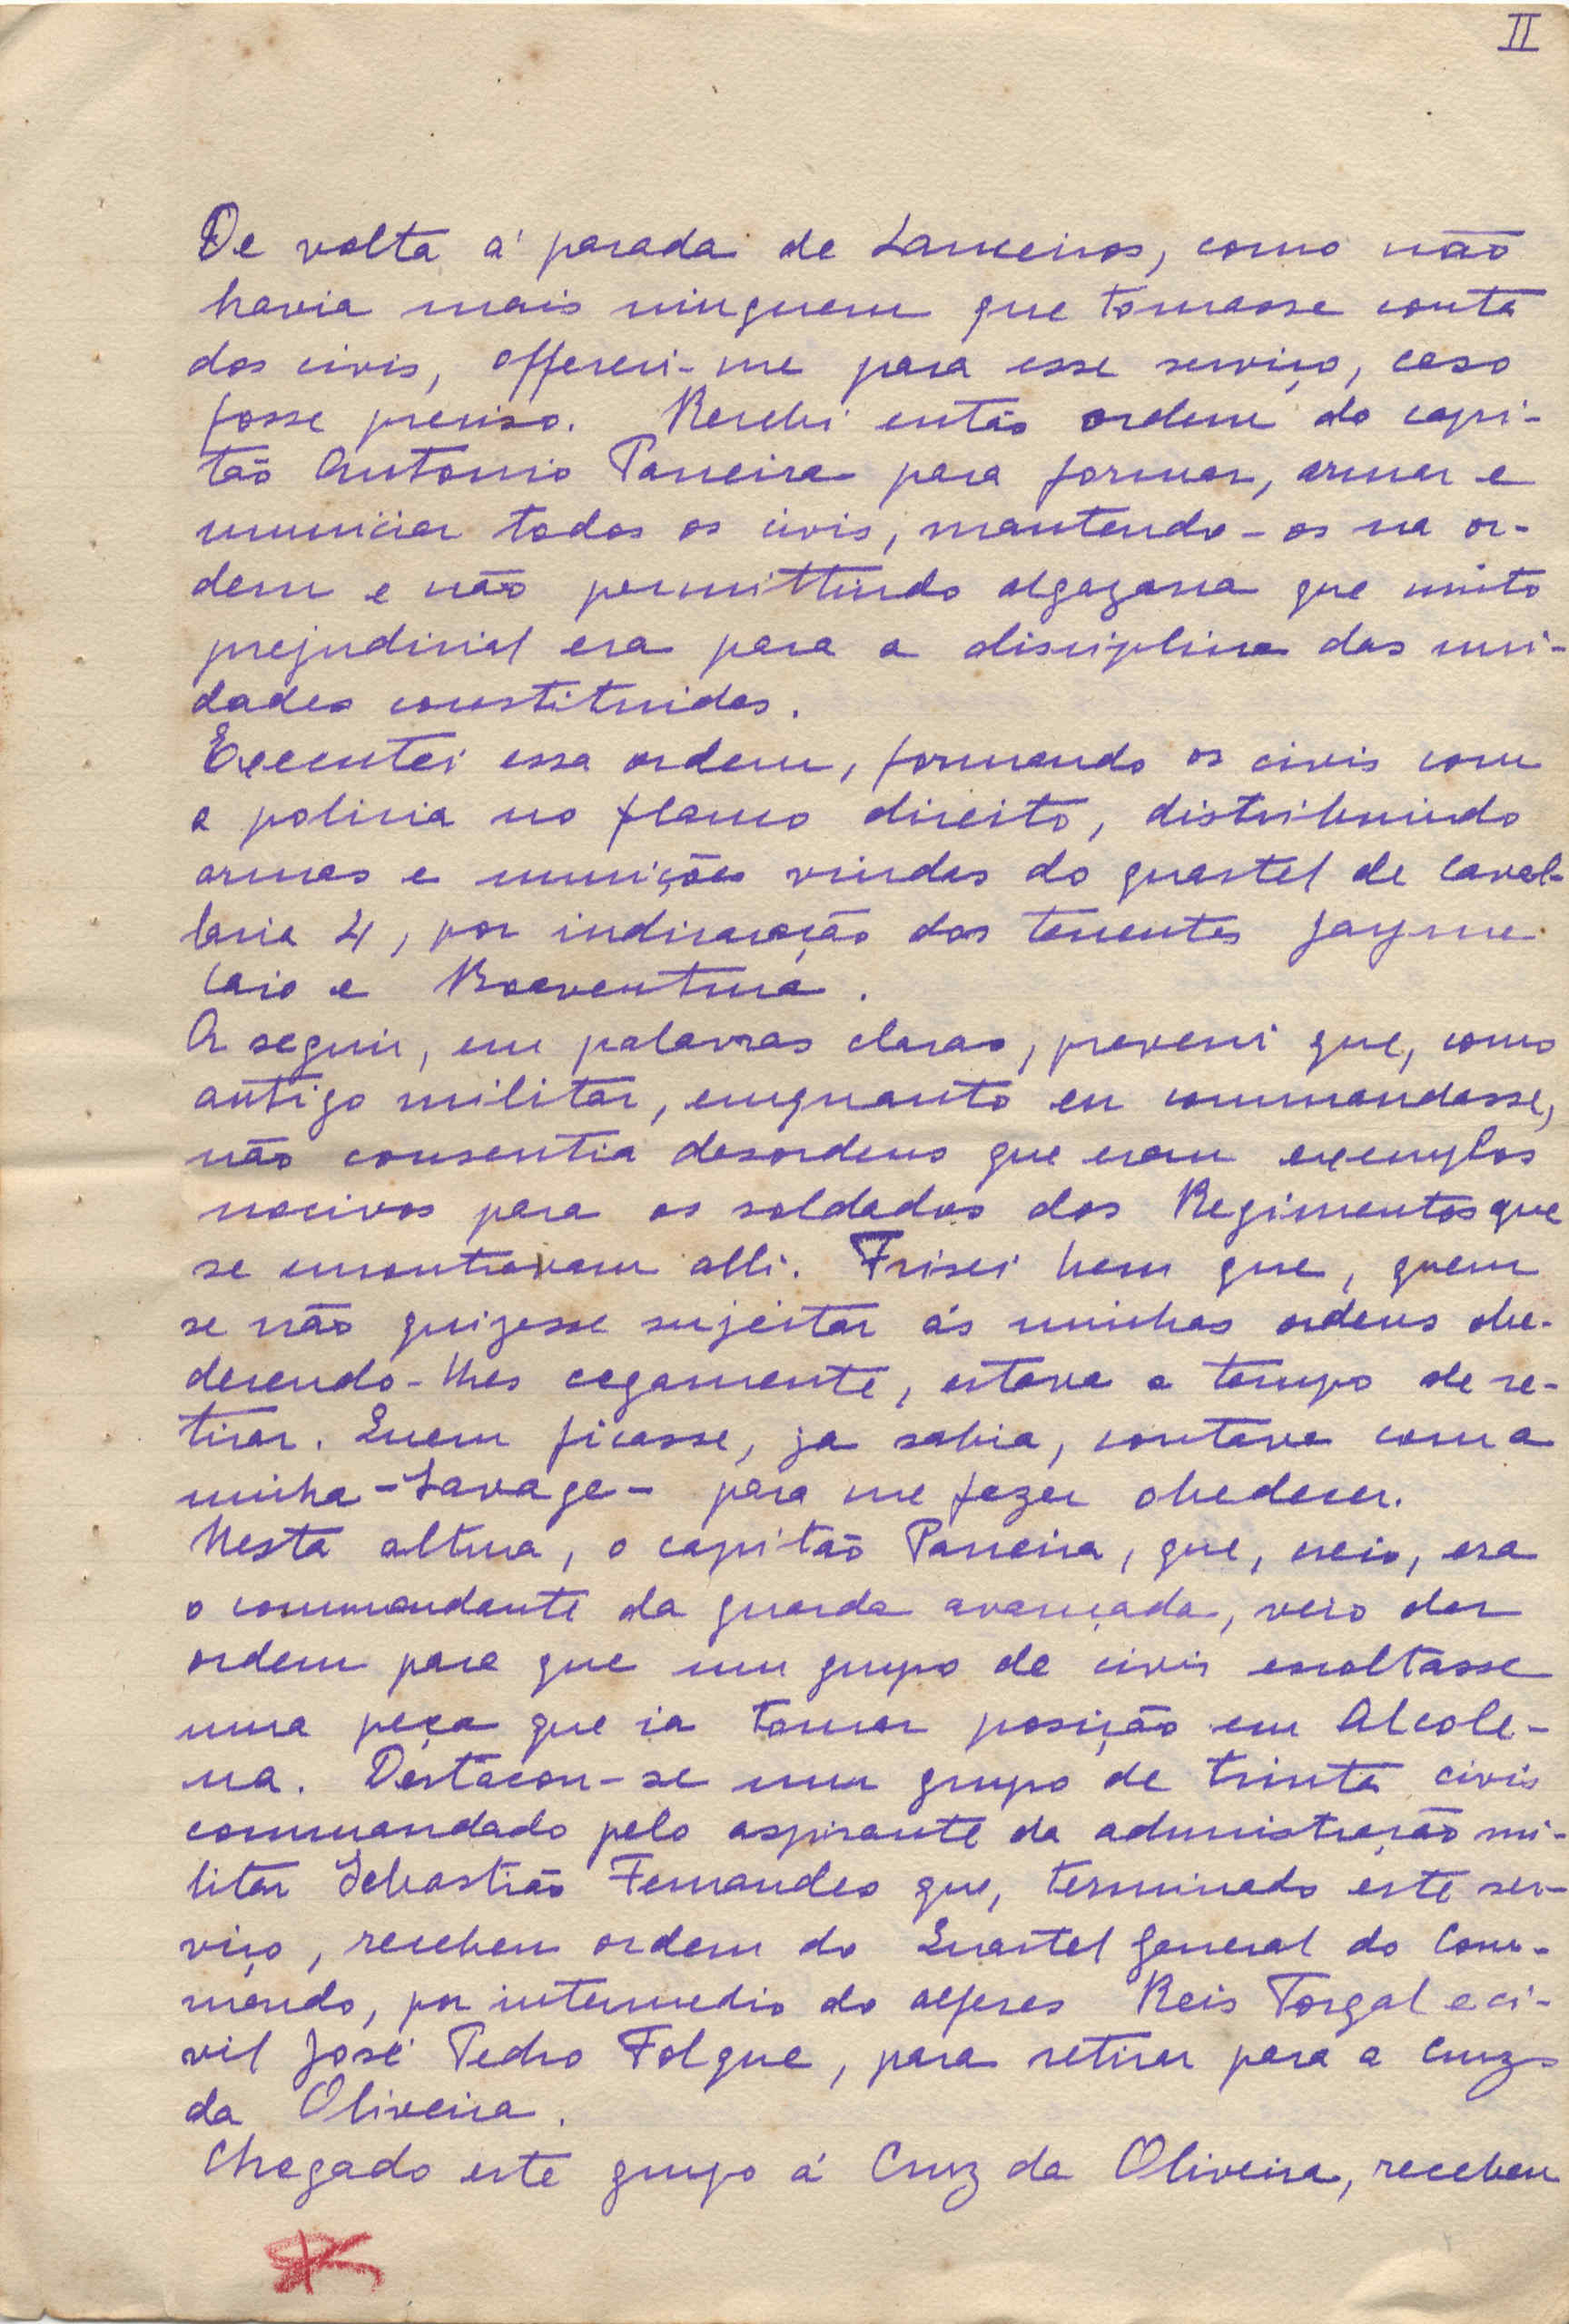 II
De volta á parada de Lanceiros, como não
havia mais ninguem que tomasse conta
dos civis, offereci-me para esse serviço, caso
fosse preciso. Recebi então ordem do capi-
tão Antonio Parreira para formar, armar e
municiar todos os civis, mantendo-os na or-
dem e não permittindo algazarra que muito
prejudicial era para a disciplina das uni-
dades constituidas.
Executei essa ordem, formando os civis com
a policia no flanco direito, distribuindo
armas e munições vindas do quartel de Caval-
laria 4, por indicação dos tenentes Jayme
Caio e Boaventura.
A seguir, em palavras claras, preveni que, como
antigo militar, emquanto eu commandasse,
não consentia desordens que eram exemplos
nocivos para os soldados dos Regimentos que
se encontravam alli. Frisei bem que, quem
se não quizesse sujeitar ás minhas ordens obe-
decendo-lhes cegamente, estava a tempo de re-
tirar. Quem ficasse, ja sabia, contava com a
minha -Savage- para me fazer obedecer.
Nesta altura, o capitão Parreira, que, creio, era
o commandante da guarda avançada, veio dar
ordem para que um grupo de civis escoltasse
uma peça que ia tomar posição em Alcole-
na. Destacou-se um grupo de trinta civis
commandado pelo aspirante da administração mi-
litar Sebastião Fernandes que, terminado este ser-
viço, recebeu ordem do Quartel General do Com-
mando, por intermedio do alferes Reis Torgal e ci-
vil José Pedro Folque, para retirar para a Cruz
da Oliveira.
Chegado este grupo á Cruz da Oliveira, recebeu